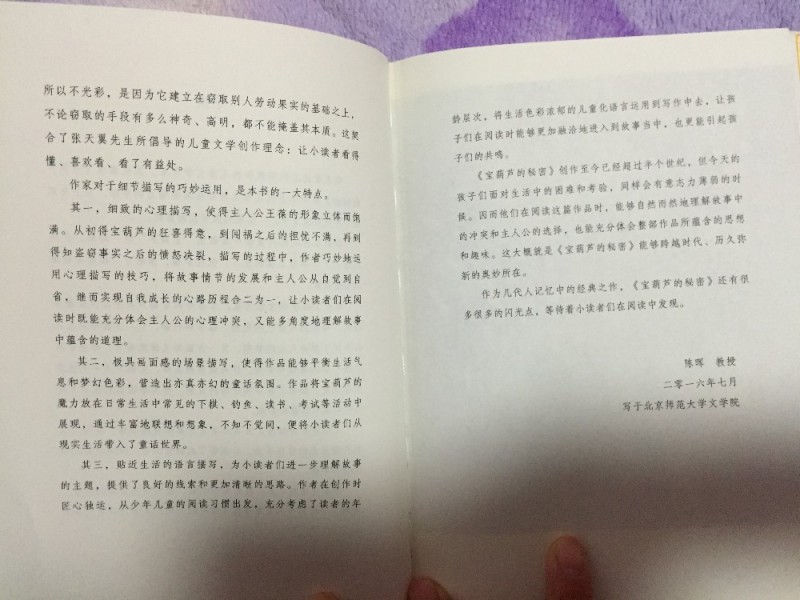 所以不光彩，是因为它建立在窃取别人劳动果实的基础之上，
不论窃取的手段有多么神奇、高明，都不能掩盖其本质。这契
合了张天翼先生所倡导的儿童文学创作理念：让小读者看得
懂、喜欢看、看了有益处。
作家对于细节描写的巧妙运用，是本书的一大特点。
其一，细致的心理描写，使得主人公王葆的形象立体而饱
满。从初得宝葫芦的狂喜得意，到闯祸之后的担忧不满，再到
得知盗窃事实之后的愤怒决裂，描写的过程中，作者巧妙地运
用心理描写的技巧，将故事情节的发展和主人公从自觉到自
省，继而实现自我成长的心路历程合二为一，让小读者们在阅
读时既能充分体会主人公的心理冲突，又能多角度地理解故事
中蕴含的道理。
其二，极具画面感的场景描写，使得作品能够平衡生活气
息和梦幻色彩，营造出亦真亦幻的童话氛围。作品将宝葫芦的
魔力放在日常生活中常见的下棋、钓鱼、读书、考试等活动中
展现，通过丰富地联想和想象，不知不觉间，便将小读者们从
现实生活带入了童话世界。
其三，贴近生活的语言描写，为小读者们进一步理解故事
的主题，提供了良好的线索和更加清晰的思路。作者在创作时
匠心独运，从少年儿童的阅读习惯出发，充分考虑了读者的年
龄层次，将生活色彩浓郁的儿童化语言运用到写作中去，让孩
子们在阅读时能够更加融洽地进入到故事当中，也更能引起孩
子们的共鸣。
《宝葫芦的秘密》创作至今已经超过半个世纪，但今天的
孩子们面对生活中的困难和考验，同样会有意志力薄弱的时
候。因而他们在阅读这篇作品时，能够自然而然地理解故事中
的冲突和主人公的选择，也能充分体会整部作品所蕴含的思想
和趣味。这大概就是《宝葫芦的秘密》能够跨越时代、历久弥
新的奥妙所在。
作为几代人记忆中的经典之作，《宝葫芦的秘密》还有很
多很多的闪光点，等待着小读者们在阅读中发现。
陈晖 教授
二零一六年七月
写于北京师范大学文学院